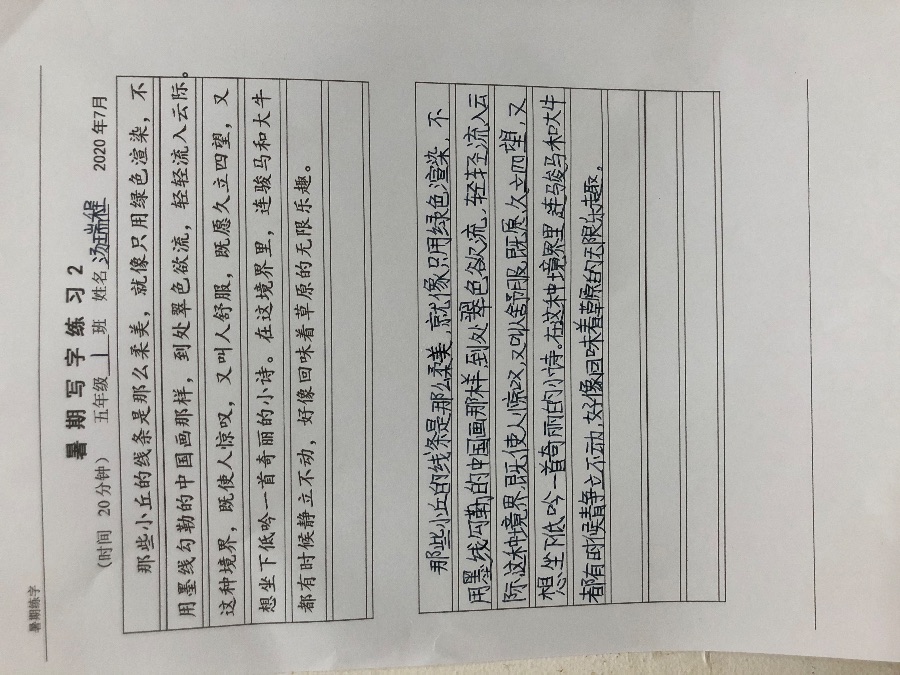 暑期练字
暑期写字练习2
（时间 20分钟） 五年级 1 班 姓名 汤瑞程 2020年7月
那些小丘的线条是那么柔美，就像只用绿色渲染，不
用墨线勾勒的中国画那样，到处翠色欲流，轻轻流入云际。
这种境界，既使人惊叹，又叫人舒服，既愿久立四望，又
想坐下低吟一首奇丽的小诗。在这境界里，连骏马和大牛
都有时候静立不动，好像回味着草原的无限乐趣。
那些小丘的线条是那么柔美，京就像只用绿色渲染，不
用墨线勾勒的中国画那样，到处翠色欲流，轻轻流入云
际，这种境界，既使人惊叹，又叫人舒服，既愿久立四望，又
想坐下低吟一首奇丽的小诗。在这种境界里，连骏马和大牛
都有时候静立不动，好像回味着草原的无限乐趣。